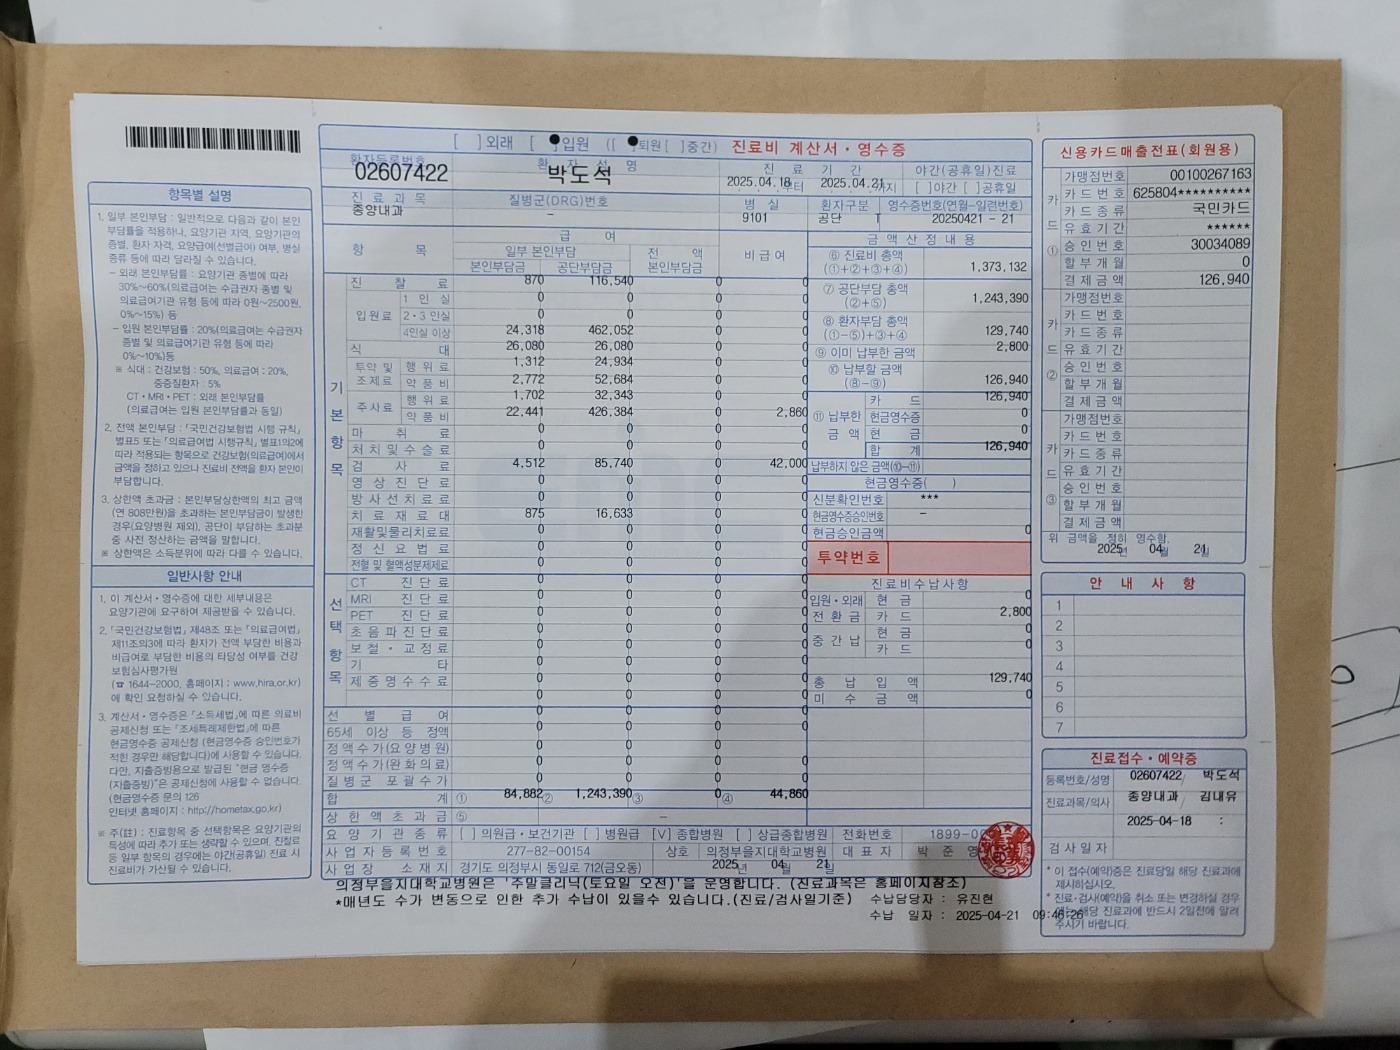 항목별 설명
1. 일부 본인부담 : 일반적으로 다음과 같이 본인
부담률을 적용하나, 요양기관 지역, 요양기관의
종별, 환자 자격, 요양급여(선별급여) 여부, 병실
종류 등에 따라 달라질 수 있습니다.
- 외래 본인부담률 : 요양기관 종별에 따라
30%~60%(의료급여는 수급권자 종별 및
의료급여기관 유형 등에 따라 0원~2500원,
0%~15%) 등
- 입원 본인부담률 : 20%(의료급여는 수급권자
종별 및 의료급여기관 유형 등에 따라
0%~10%)등
※ 식대 : 건강보험 : 50%, 의료급여 : 20%,
중증질환자 : 5%
CT·MRI·PET : 외래 본인부담률
(의료급여는 입원 본인부담률과 동일)
2. 전액 본인부담 : 「국민건강보험법 시행 규칙」
별표5 또는 「의료급여법 시행규칙」 별표1의2에
따라 적용되는 항목으로 건강보험(의료급여)에서
금액을 정하고 있으나 진료비 전액을 환자 본인이
부담합니다.
3. 상한액 초과금 : 본인부담상한액의 최고 금액
(연 808만원)을 초과하는 본인부담금이 발생한
경우(요양병원 제외), 공단이 부담하는 초과분
중 사전 정산하는 금액을 말합니다.
※ 상한액은 소득분위에 따라 다를 수 있습니다.
일반사항 안내
1. 이 계산서·영수증에 대한 세부내용은
요양기관에 요구하여 제공받을 수 있습니다.
2. 「국민건강보험법」 제48조 또는 「의료급여법」
제11조의3에 따라 환자가 전액 부담한 비용과
비급여로 부담한 비용의 타당성 여부를 건강
보험심사평가원
(☎ 1644-2000, 홈페이지 : www.hira.or.kr)
에 확인 요청하실 수 있습니다.
3. 계산서·영수증은 「소득세법」에 따른 의료비
공제신청 또는 「조세특례제한법」에 따른
현금영수증 공제신청 (현금영수증 승인번호가
적힌 경우만 해당합니다)에 사용할 수 있습니다.
다만, 지출증빙용으로 발급된 "현금 영수증
(지출증빙)"은 공제신청에 사용할 수 없습니다.
(현금영수증 문의 126
인터넷 홈페이지 : http://hometax.go.kr)
※ 주(註) : 진료항목 중 선택항목은 요양기관의
특성에 따라 추가 또는 생략할 수 있으며, 진찰료
등 일부 항목의 경우에는 야간(공휴일) 진료 시
진료비가 가산될 수 있습니다.
[ ]외래 [●입원 ([●퇴원[ ]중간) 진료비 계산서·영수증
환자등록번호 환자성명 진료기간 야간(공휴일)진료
02607422 박도석 2025.04.18부터 2025.04.21까지 [ ]야간 [ ]공휴일
진료과목 질병군(DRG)번호 병실 환자구분 영수증번호(연월-일련번호)
종양내과 - 9101 공단 T 20250421 - 21
항목 급여 비급여 금액산정내용
일부 본인부담 전액
본인부담금 공단부담금 본인부담금
기본항목
진찰료 870 116,540 0 0
입원료 1인실 0 0 0 0
2·3인실 0 0 0 0
4인실 이상 24,318 462,052 0 0
식대 26,080 26,080 0 0
투약 및 조제료 행위료 1,312 24,934 0 0
약품비 2,772 52,684 0 0
주사료 행위료 1,702 32,343 0 0
약품비 22,441 426,384 0 2,860
마취료 0 0 0 0
처치및수술료 0 0 0 0
검사료 4,512 85,740 0 42,000
영상진단료 0 0 0 0
방사선치료료 0 0 0 0
치료재료대 875 16,633 0 0
재활및물리치료료 0 0 0 0
정신요법료 0 0 0 0
전혈 및 혈액성분제제료 0 0 0 0
선택항목
CT 진단료 0 0 0 0
MRI 진단료 0 0 0 0
PET 진단료 0 0 0 0
초음파진단료 0 0 0 0
보철·교정료 0 0 0 0
기타 0 0 0 0
제증명수수료 0 0 0 0
0 0 0 0
선별급여 0 0 0 0
65세 이상 등 정액 0 0 0 0
정액수가(요양병원) 0 0 0 0
정액수가(완화의료) 0 0 0 0
질병군 포괄수가 0 0 0 0
합계 ① 84,882 ② 1,243,390 ③ 0 ④ 44,860
상한액초과금 ⑤ -
⑥ 진료비 총액
(①+②+③+④) 1,373,132
⑦ 공단부담 총액
(②+⑤) 1,243,390
⑧ 환자부담 총액
(①-⑤)+③+④ 129,740
⑨ 이미 납부한 금액 2,800
⑩ 납부할 금액
(⑧-⑨) 126,940
⑪ 납부한 금액 카드 126,940
현금영수증 0
현금 0
합계 126,940
납부하지 않은 금액(⑩-⑪)
현금영수증( )
신분확인번호 ***
현금영수증승인번호 -
현금승인금액 0
투약번호
진료비수납사항
입원·외래 전환금 현금 0
카드 2,800
중간납 현금 0
카드 0
총납입액 129,740
미수금액 0
요양기관종류 [ ]의원급·보건기관 [ ]병원급 [V]종합병원 [ ]상급종합병원 전화번호 1899-0
사업자등록번호 277-82-00154 상호 의정부을지대학교병원 대표자 박준영
사업장 소재지 경기도 의정부시 동일로 712(금오동) 2025년 04월 21일
의정부을지대학교병원은 '주말클리닉(토요일 오전)'을 운영합니다. (진료과목은 홈페이지참조)
*매년도 수가 변동으로 인한 추가 수납이 있을수 있습니다.(진료/검사일기준) 수납담당자 : 유진현
수납 일자 : 2025-04-21 09:46:26
신용카드매출전표(회원용)
카드①
가맹점번호 00100267163
카드번호 625804**********
카드종류 국민카드
유효기간 ******
승인번호 30034089
할부개월 0
결제금액 126,940
카드②
가맹점번호
카드번호
카드종류
유효기간
승인번호
할부개월
결제금액
카드③
가맹점번호
카드번호
카드종류
유효기간
승인번호
할부개월
결제금액
위 금액을 정히 영수함.
2025년 04월 21일
안내사항
1
2
3
4
5
6
7
진료접수·예약증
등록번호/성명 02607422 / 박도석
진료과목/의사 종양내과 / 김내유
2025-04-18 :
검사일자
* 이 접수(예약)증은 진료당일 해당 진료과에
제시하십시오.
* 진료·검사(예약)을 취소 또는 변경하실 경우
에는 해당 진료과에 반드시 2일전에 알려
주시기 바랍니다.